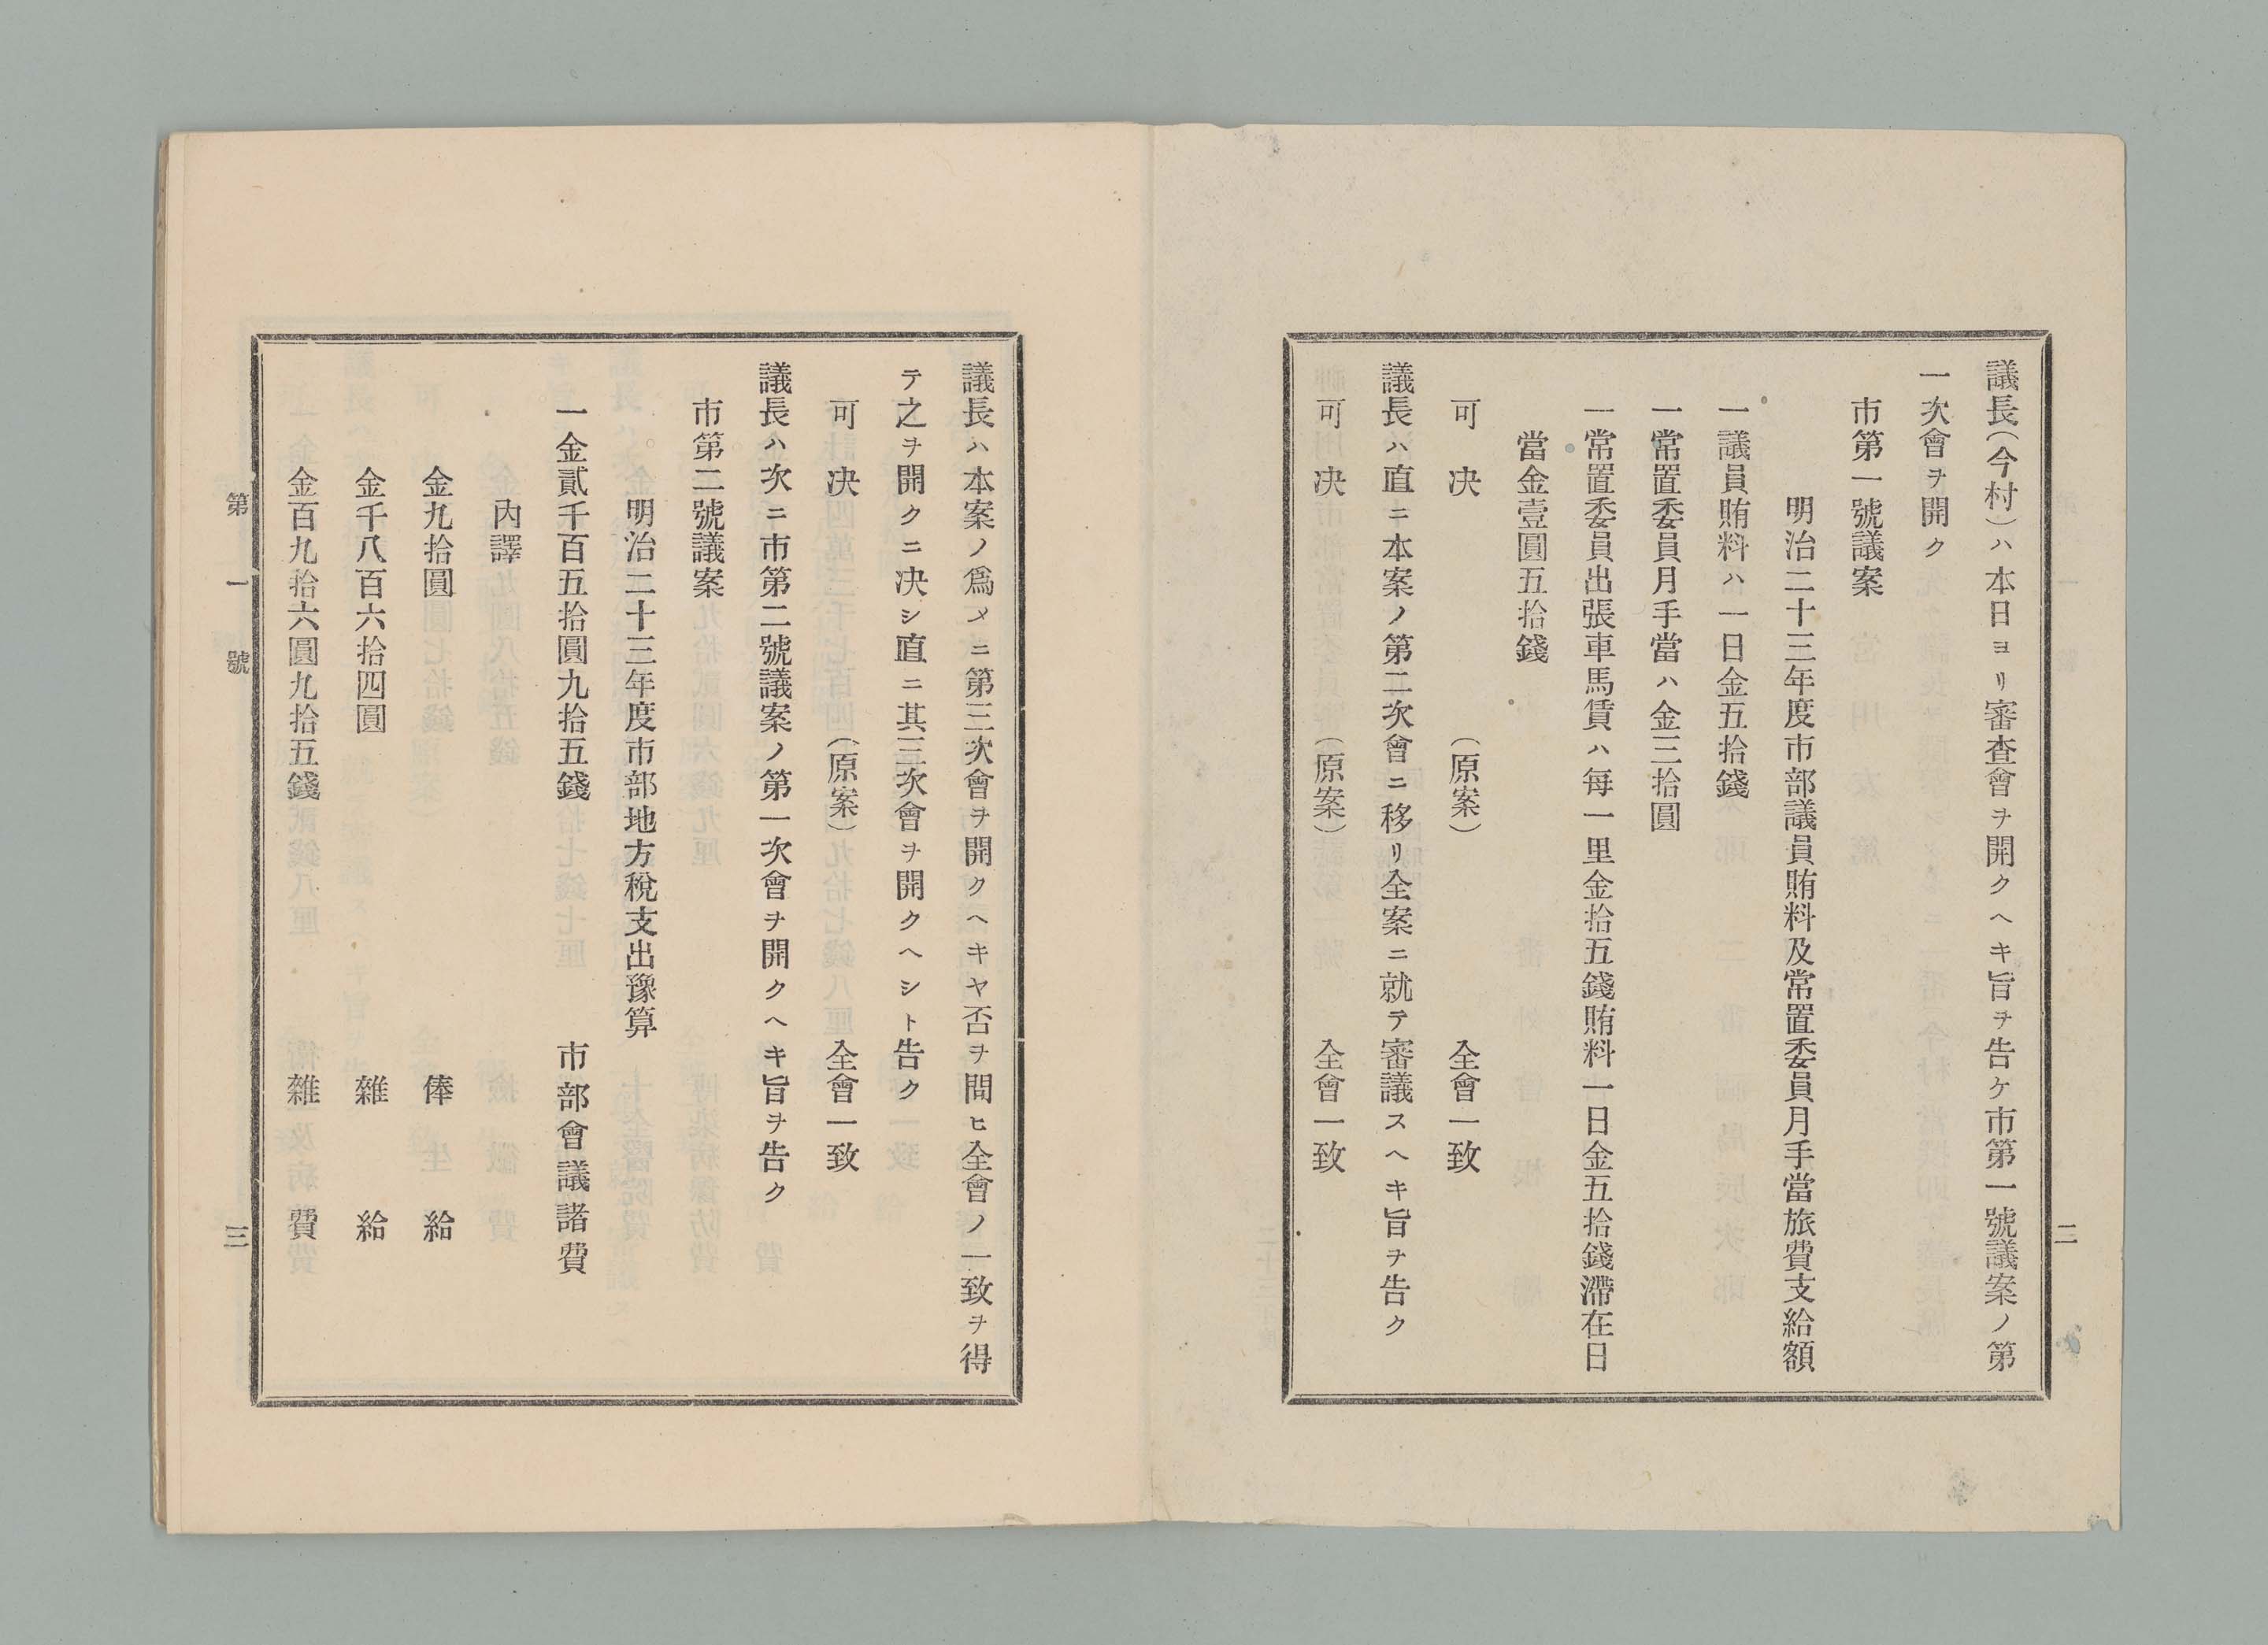 議長(今村)ハ本日ヨリ審査會ヲ開クヘキ旨ヲ告ケ市第一號議案ノ第
一次會ヲ開ク
市第一號議案
明治二十三年度市部議員賄料及常置委員月手當旅費支給額
一議員賄料ハ一日金五拾錢
一常置委員月手當ハ金三拾圓
一常置委員出張車馬賃ハ每一里金拾五錢賄料一日金五拾錢滯在日
當金壹圓五拾錢
可決 (原案) 全會一致
議長ハ直ニ本案ノ第二次會ニ移リ全案ニ就テ審議スヘキ旨ヲ告ク
可決 (原案) 全會一致
二
議長ハ本案ノ爲メニ第三次會ヲ開クヘキヤ否ヲ問ヒ全會ノ一致ヲ得
テ之ヲ開クニ决シ直ニ其三次會ヲ開クヘシト告ク
可决 (原案) 全會一致
議長ハ次ニ市第二號議案ノ第一次會ヲ開クヘキ旨ヲ告ク
市第二號議案
明治二十三年度市部地方稅支出豫算
一金貳千百五拾圓九拾五錢 市部會議諸費
內譯
金九拾圓 俸給
金千八百六拾四圓 雜給
金百九拾六圓九拾五錢 雜費
第一號 三